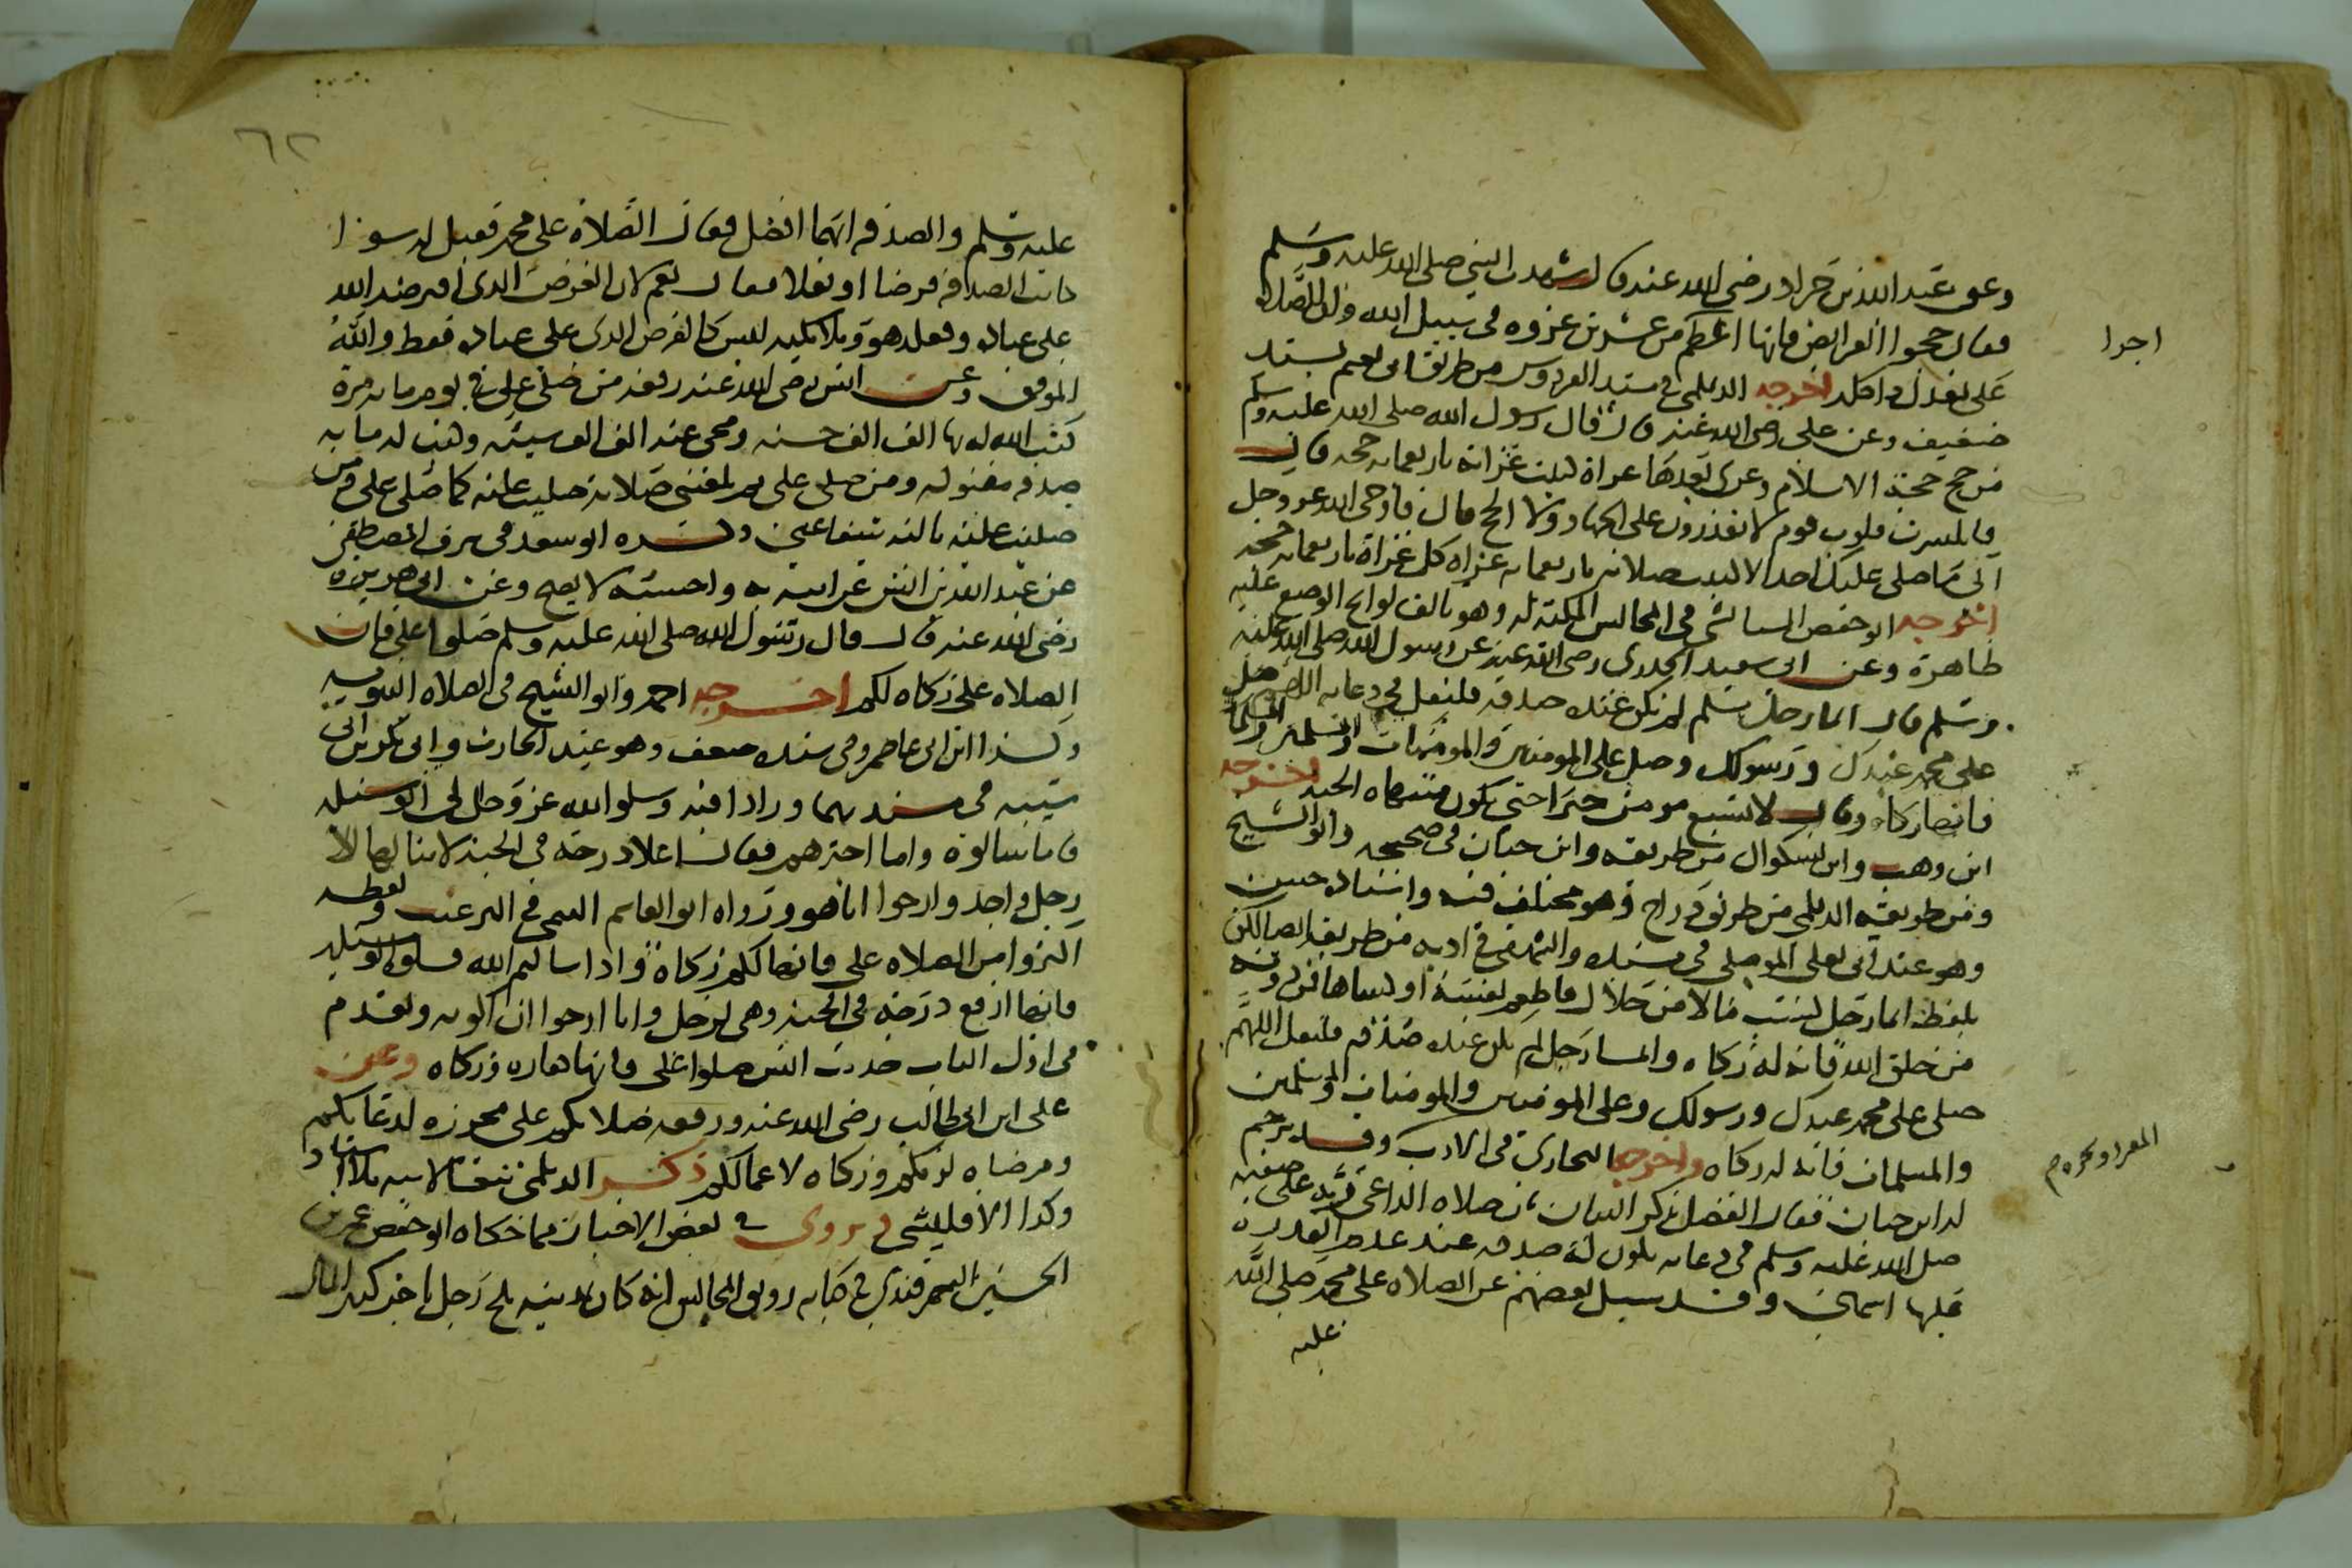 وعن عبد الله بن جراد رضي الله عنه قال شهدت النبي صلى الله عليه وسلم
فقال حجوا الفرائض فانها اعظم من عشرين غزوه في سبيل الله وان الصلاة
اجرا
على تعدل ذا كله اخرجه الديلمي في مسند الفردوس من طريق ابي نعيم بسند
ضعيف وعن علي رضي الله عنه قال قال رسول الله صلى الله عليه وسلم
من حج حجة الاسلام وغزى بعدها غزاة كتبت غزاته باربعمايه حجه قال
فانكسرت قلوب قوم لا يقدرون على الجهاد ولا الحج قال فاوحى الله عز وجل
الي ما صلى عليك احد الا كتبت صلاته باربعمايه غزاه كل غزاة باربعمايه حجه
اخرجه ابو حفص الميانشي في المجالس المكية له وهو تالف لوائح الوضع عليه
ظاهرة وعن ابي سعيد الخدري رضي الله عنه عن رسول الله صلى الله عليه
وسلم قال ايما رجل مسلم لم تكن عنده صدقه فليقل في دعايه اللهم صل
على محمد عبدك ورسولك وصل على المومنين والمومنات والمسلمين والمسلمات
فانها زكاة وقال لا يشبع مومن خيرا حتى يكون منتهاه الجنه اخرجه
ابن وهب وابن بشكوال من طريقه وابن حبان في صحيحه وابو الشيخ
ومن طريقه الديلمي من طريق دراج وهو مختلف فيه واسناده حسن
وهو عند ابي يعلى الموصلي في مسنده والبيهقي في ادبه من طريقه ايضا لكن
بلفظ ايما رجل كسب مالا من حلال فاطعم نفسه او كساها فمن دونه
من خلق الله فانه له زكاه وايما رجل لم يكن عنده صدقه فليقل اللهم
صلى على محمد عبدك ورسولك وعلى المومنين والمومنات والمسلمين
والمسلمات فانه له زكاه واخرجه البخاري في الادب المفرد وقد ترجم
له ابن حبان فقال الفضل ذكر البيان بان صلاه الداعي ربه على صفيه
صلى الله عليه وسلم في دعايه تكون له صدقه عند عدم القدره
عليها اسماعين وقد سيل بعضهم عن الصلاه على محمد صلى الله
عليه
٦٢
عليه وسلم والصدقه ايهما افضل فقال الصلاة على محمد فقيل له سوا
كانت الصدقة فرضا او نفلا فقال نعم لان الفرض الذي افترضه الله
على عباده وفعله هو وملائكته ليس كالفرض الذي على عباده فقط والله
الموفق وعن انس رضي الله عنه رفعه من صلى علي في يوم مايه مرة
كتب الله له بها الف الف حسنه ومحى عنه الف الف سيئه وكتب له مايه
صدقه مقبوله ومن صلى علي ثم بلغتني صلاته صليت عليه كما صلى علي ومن
صليت عليه نالته شفاعتي ذكره ابو سعد في شرف المصطفى
عن عبد الله بن انس عن ابيه به واحسبه لا يصح وعن ابي هريرة
رضي الله عنه قال قال رسول الله صلى الله عليه وسلم صلوا علي فان
الصلاه علي زكاه لكم اخرجه احمد وابو الشيخ في الصلاه النبويه
وكذا ابن ابي عاصم وفي سنده ضعف وهو عند الحارث وابي بكر بن ابي
شيبه في مسنديهما وزادا فيه وسلوا الله عز وجل لي الوسيله
فاما سالوه واما اخبرهم فقال اعلا درجة في الجنه لا ينالها الا
رجل واحد وارجوا انا هو ورواه ابو القاسم التيمي في الترغيب ولفظه
اكثروا من الصلاه علي فانها لكم زكاة واذا سالتم الله فسلوه الوسيله
فانها ارفع درجه في الجنه وهي لرجل وانا ارجوا ان اكونه وتقدم
في اول الباب حديث انس صلوا علي فانها طهاره وزكاه وعن
علي ابن ابي طالب رضي الله عنه ورفعه صلاتكم علي محرزه لدعايكم
ومرضاه لربكم وزكاه لاعمالكم ذكره الديلمي تبعا لابيه بلا اسناد
وكذا الاقليشي ويروى في بعض الاخبار مما حكاه ابو حفص عمر بن
الحسين السمرقندي في كتابه رونق المجالس انه كان بمدينه بلخ رجل تاجر كثير المال